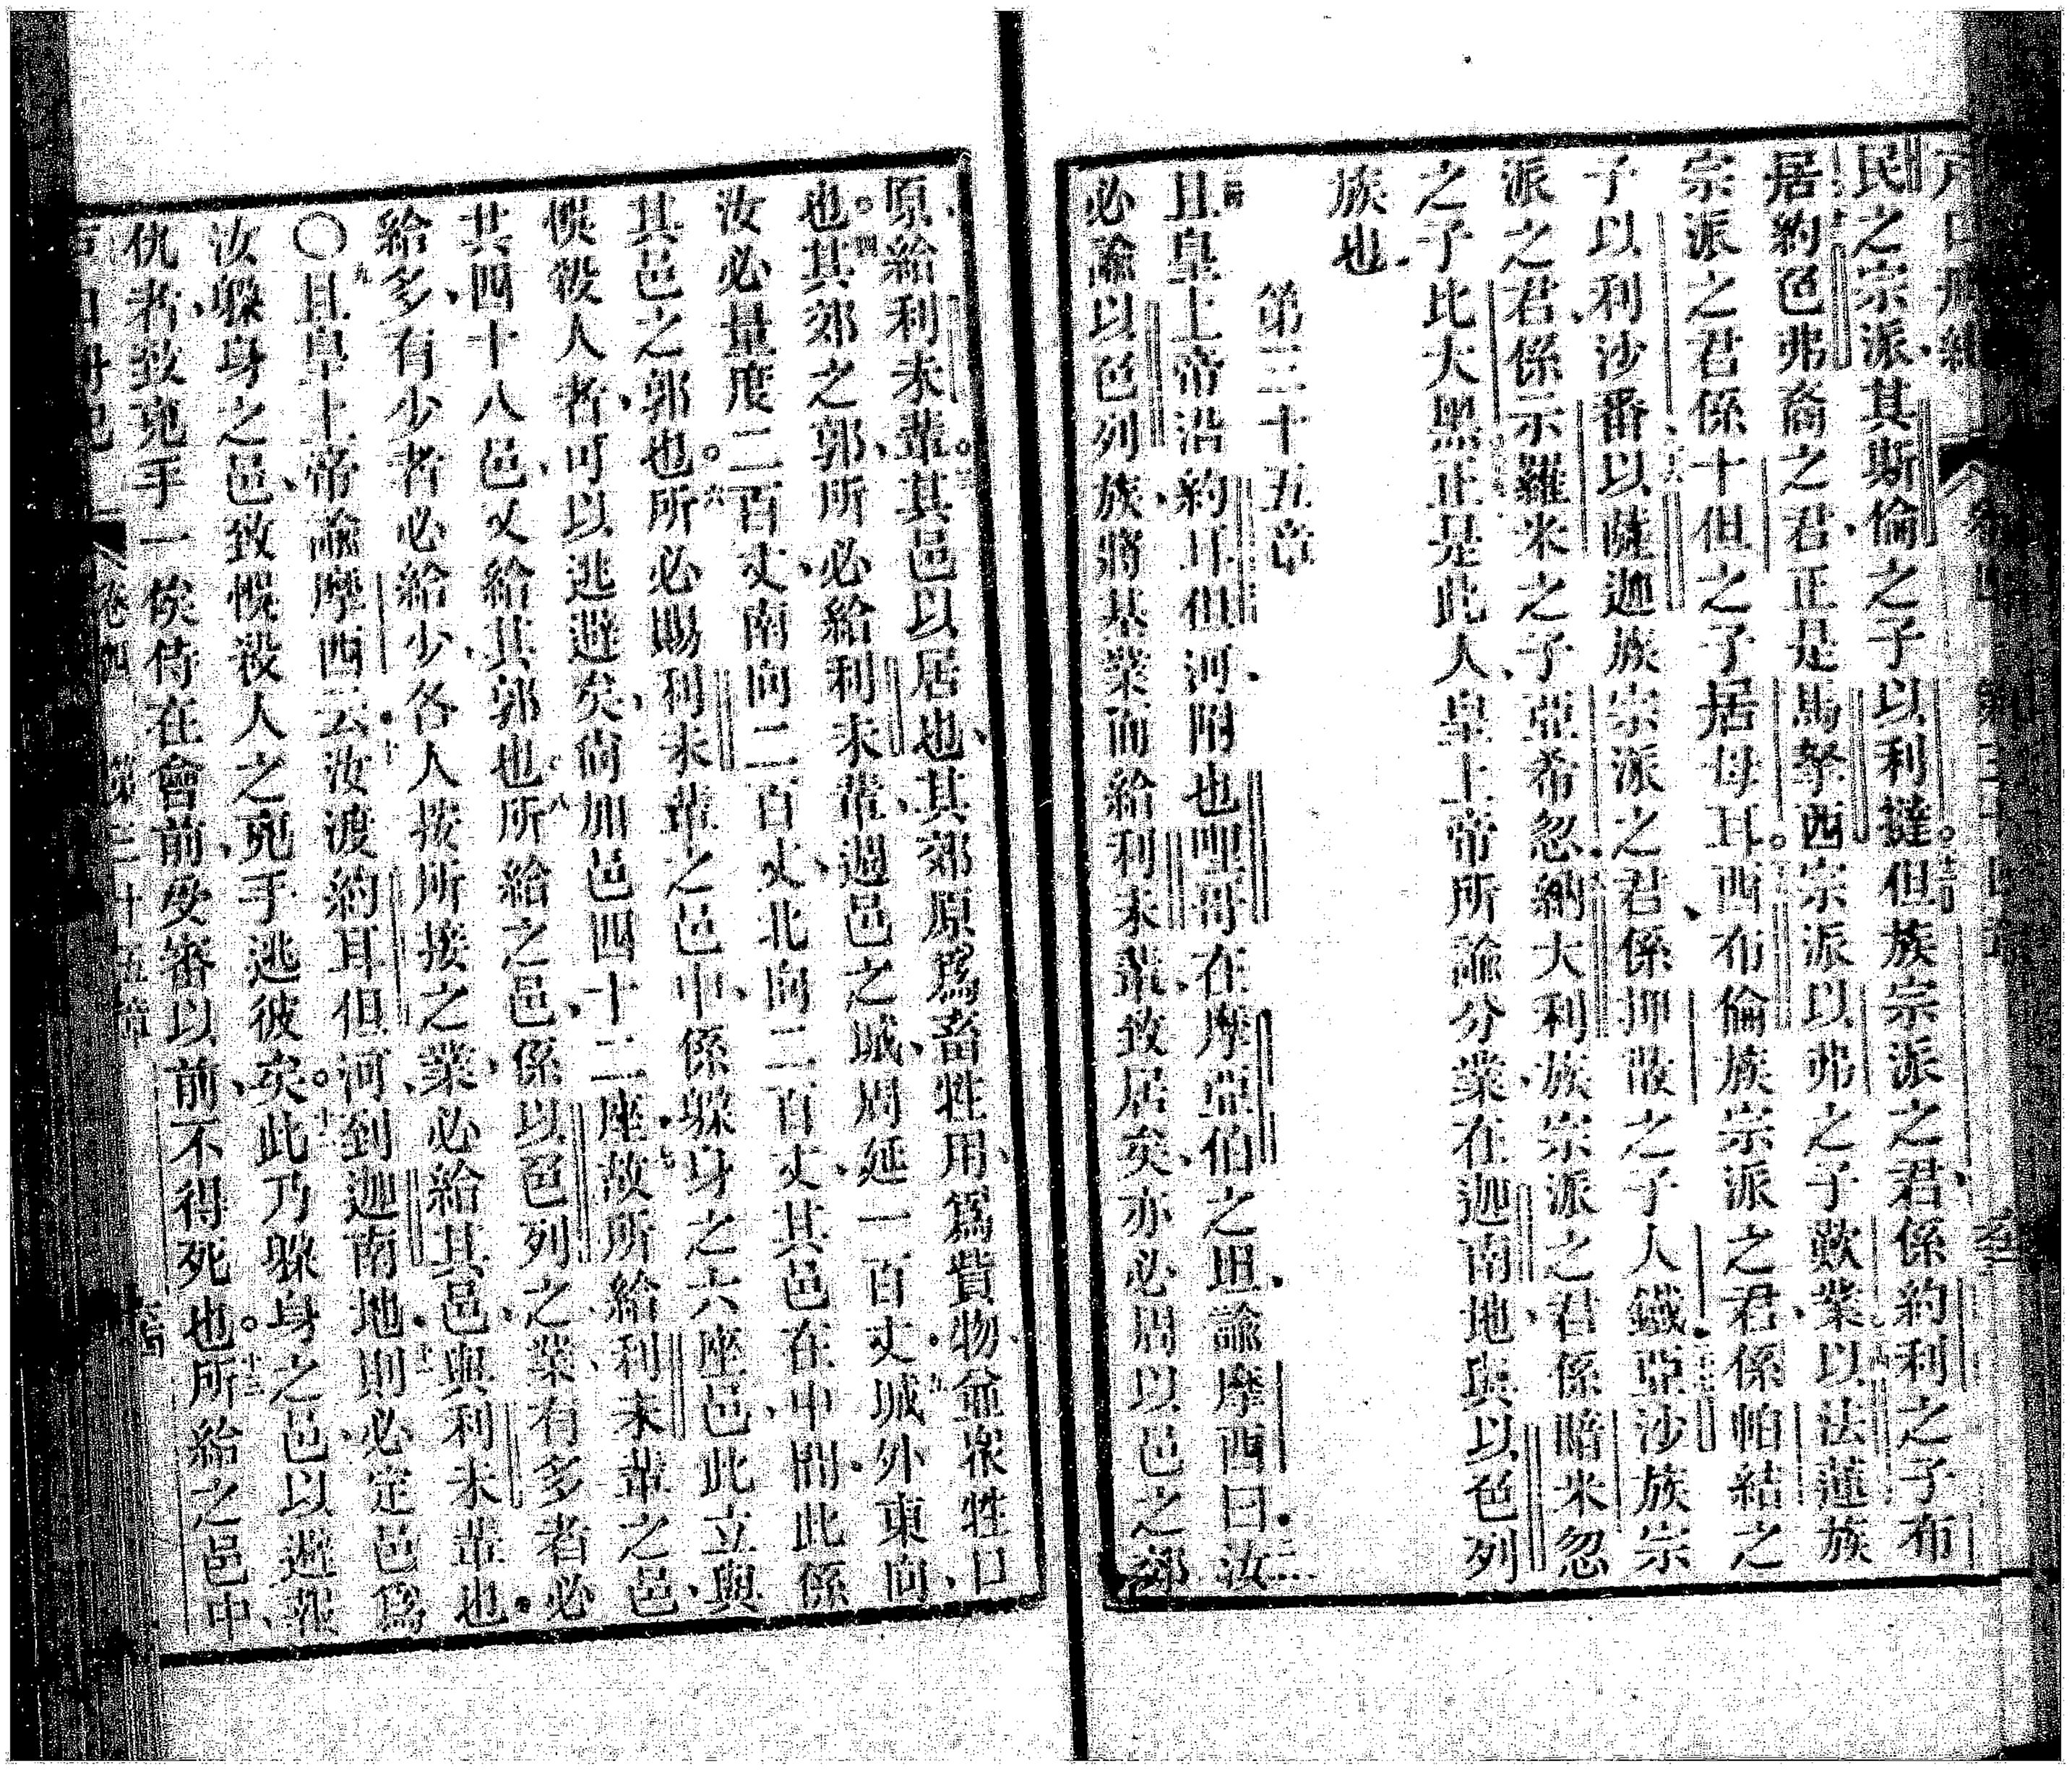 民之宗派、其斯倫之子以利撻但族宗派之君、係約利之子布
居約色弗裔之君、正是馬拏西宗派以弗之子歎業、以法蓮族
宗派之君係十但之子居母耳西布倫族宗派之君、係帕結之
子以利沙番以薩迦族宗派之君係押散之子人鐵亞沙族宗
派之君係示羅米之子亞希忽納大利族宗派之君係暗米忽
之子比大黑正是此人皇上帝所諭分業在迦南地與以色列
族也
第三十五章
且皇上帝沿約耳但河附也哩哥在摩亞伯之坦諭摩西曰汝
必諭以色列族將基業而給利未輩致居矣亦必周以邑之郊
原給利未輩。其邑以居也、其郊原爲畜牲用爲貲物並衆牲口
也。其郊之郭、所必給利未輩、週邑之城、周延一百丈。城外東向、
汝必量度二百丈、南向二百丈、北向二百丈、其邑在中間、此係
其邑之郭也。所必賜利未輩之邑中、係躲身之六座邑、此立與
悞殺人者、可以逃避矣、尚加邑四十二座、故所給利未輩之邑、
共四十八邑、又給其郭也。所給之邑、係以色列之業、有多者必
給多、有少者必給少、各人按所接之業、必給其邑與利未輩也。
〇且皇上帝諭摩西云、汝渡約耳但河到迦南地、則必定邑爲
汝躲身之邑、致悞殺人之兇手逃彼矣。此乃躲身之邑以避報
仇者、致兇手一俟侍在會前受審以前、不得死也。所給之邑中、
卷四 第三十五章